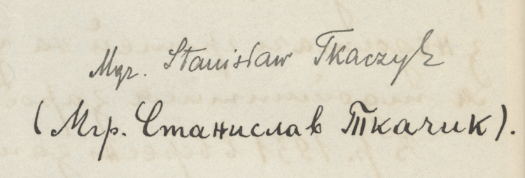 Mgr. Stanisław Tkaczyk
(Мґр. Станислав Ткачик).